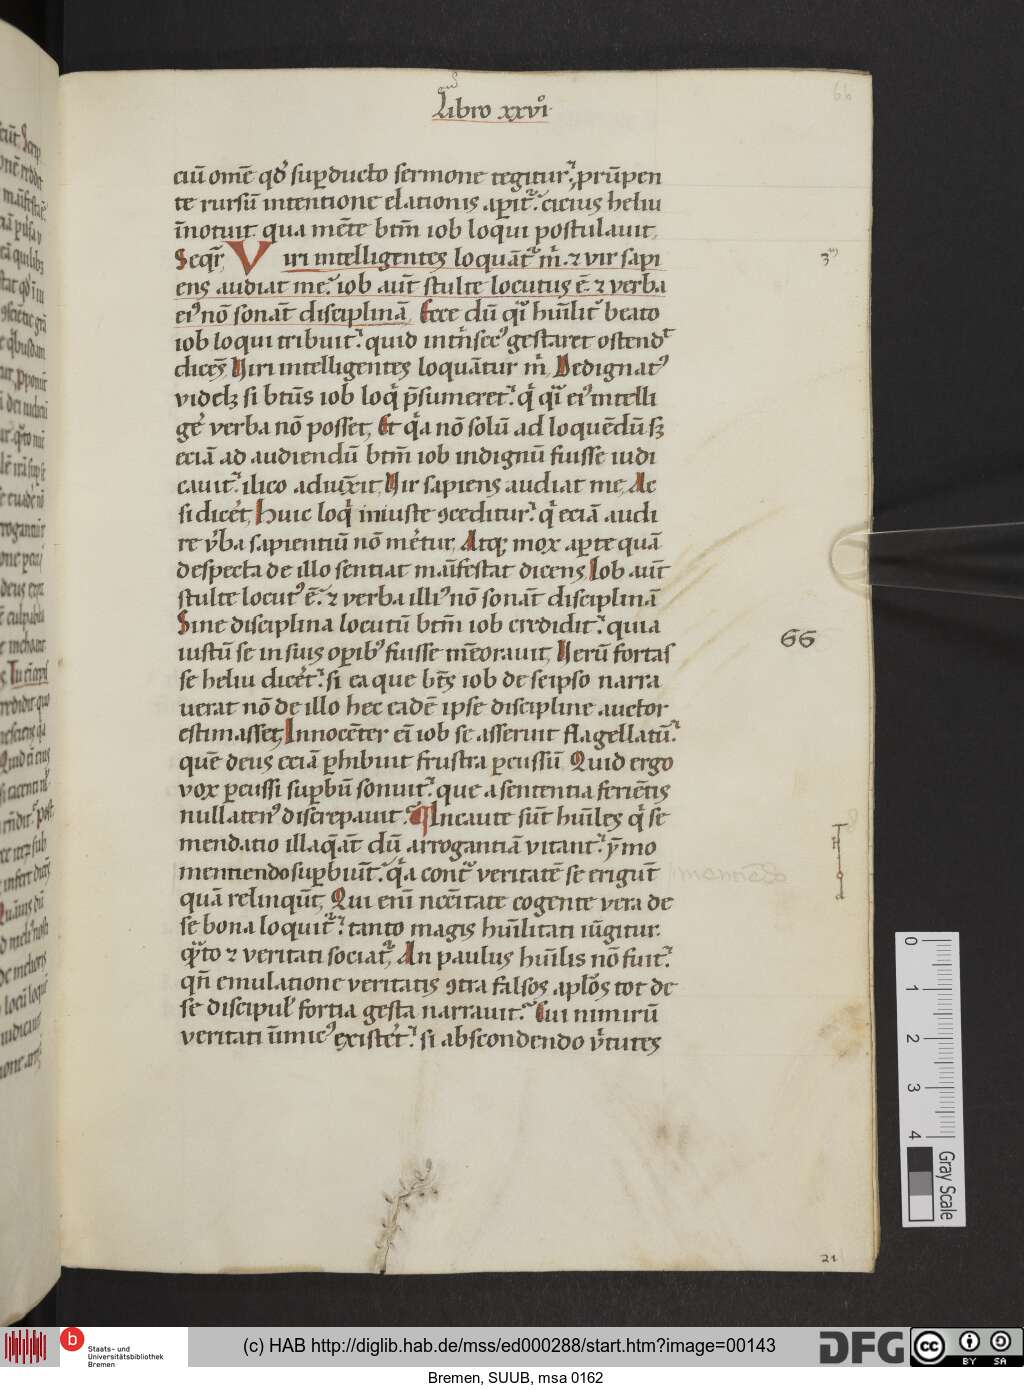 Libro xxvi
66
ciū omē qd' sup̄ducto sermone tegitur, prūpen
te rursū intentione elationis aꝑit᷑. cicius heliu
īnotuit qua mēte btm̄ iob loqui postulauit,
Seqr̄, Viri intelligentes loquāt᷑ m̄. ⁊ vir sapi
3
ens audiat me. iob aūt stulte locutus ē. ⁊ verba
eiꝰ nō sonāt disciplinā, Ecce dū qi' hūilit᷑ beato
iob loqui tribuit. quid int'nsecꝰ gestaret ostend᷑
dicēs, Viri intelligentes loquātur m̄, Dedignatꝰ
videlꝫ si btūs iob loq̄ p̄sumeret. q̄ qi' eiꝰ intelli
ge' verba nō posset, Et q'a nō solū ad loquēdū sꝫ
eciā ad audiendū btm̄ iob indignū fuisse iudi
cauit. ilico adiūxit, Vir sapiens audiat me, Ac
si dicēt, Huic loq̄ iniuste ꝯceditur. q̄ eciā audi
re v'ba sapientiū nō me'tur, Atqꝫ mox aꝑte quā
despecta de illo sentiat māifestat dicens, Iob aūt
stulte locutꝰ ē. ⁊ verba illiꝰ nō sonāt disciplinā
Sine disciplina locutū btm̄ iob credidit. quia
66
iustū se in suis oꝑibꝰ fuisse mēorauit, Verū fortas
se heliu dice't. si ea que btūs iob de seipso narra
uerat nō de illo hec eadē ipse discipline auctor
estimasset, Innocēter eī iob se asseruit flagellatū.
quē deus eciā ꝑhibuit frustra ꝑcussū, Quid ergo
vox ꝑcussi suꝑbū sonuit. que a sententia feriētis
nullatenꝰ discrepauit. Incaute sūt hūiles q̄ se
mendatio illaq̄āt dū arrogantiā vitant. ȳmo
mentiendo suꝑbiūt. q'a cont᷑ veritatē se erigūt
quā relinqūt, Qui enī nec̄itate cogente vera de
se bona loquit᷑. tanto magis hūilitati iūgitur.
q̄to ⁊ veritati sociat᷑, An paulus hūilis nō fuit.
qn̄ emulatione veritatis ꝯtra falsos aplōs tot de
se discipul' fortia gesta narrauit. Cui nimirū
veritati īimicꝰ existe't. si abscondendo v'tutes
21
0
1
2
3
4
Gray Scale
b
Staats- und
Universitätsbibliothek
Bremen
(c) HAB http://diglib.hab.de/mss/ed000288/start.htm?image=00143
DFG
cc
BY SA
Bremen, SUUB, msa 0162